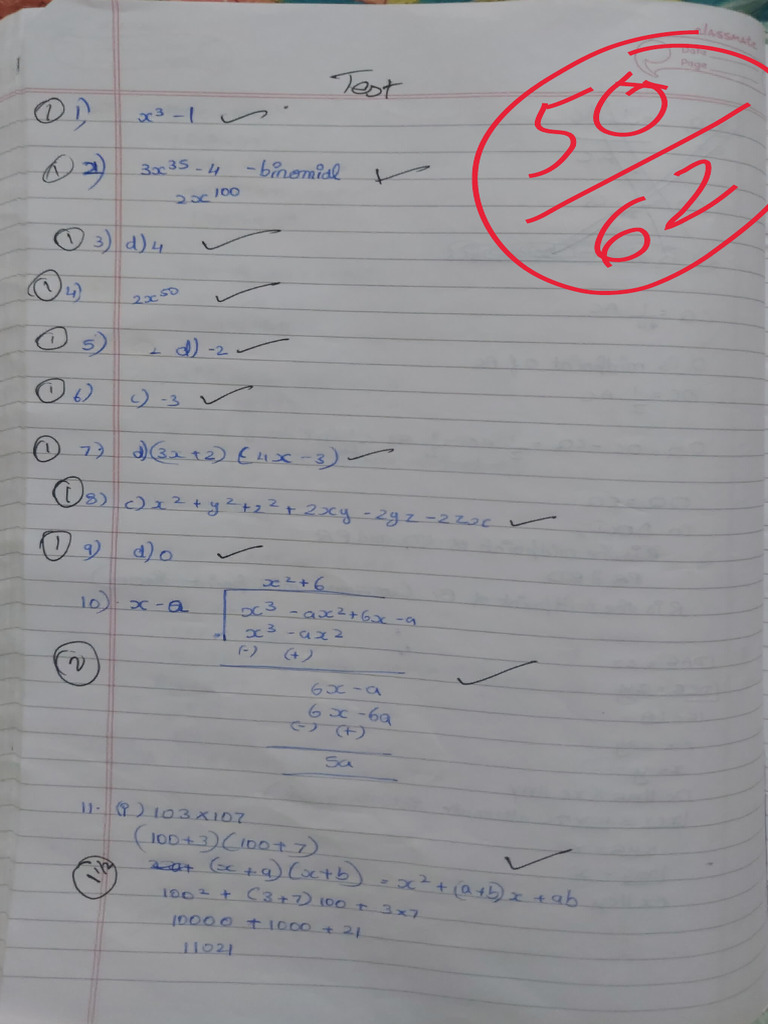 classmate
Date
Page
Test
50
62
① 1) x³ - 1 ✓
① 2) 3x³⁵ - 4 - binomial ✓
2x¹⁰⁰
① 3) d) 4 ✓
① 4) 2x⁵⁰ ✓
① 5) - d) -2 ✓
① 6) c) -3 ✓
① 7) d) (3x+2) (4x-3) ✓
① 8) c) x² + y² + z² + 2xy - 2yz - 2zx ✓
① 9) d) 0 ✓
x² + 6
10) x - a x³ - ax² + 6x - a
x³ - ax²
(-) (+)
② 6x - a ✓
6x - 6a
(-) (+)
5a
11. (i) 103 x 107
(100+3) (100+7)
1 1/2 (x+a) (x+b) = x² + (a+b)x + ab ✓
100² + (3+7) 100 + 3x7
10000 + 1000 + 21
11021